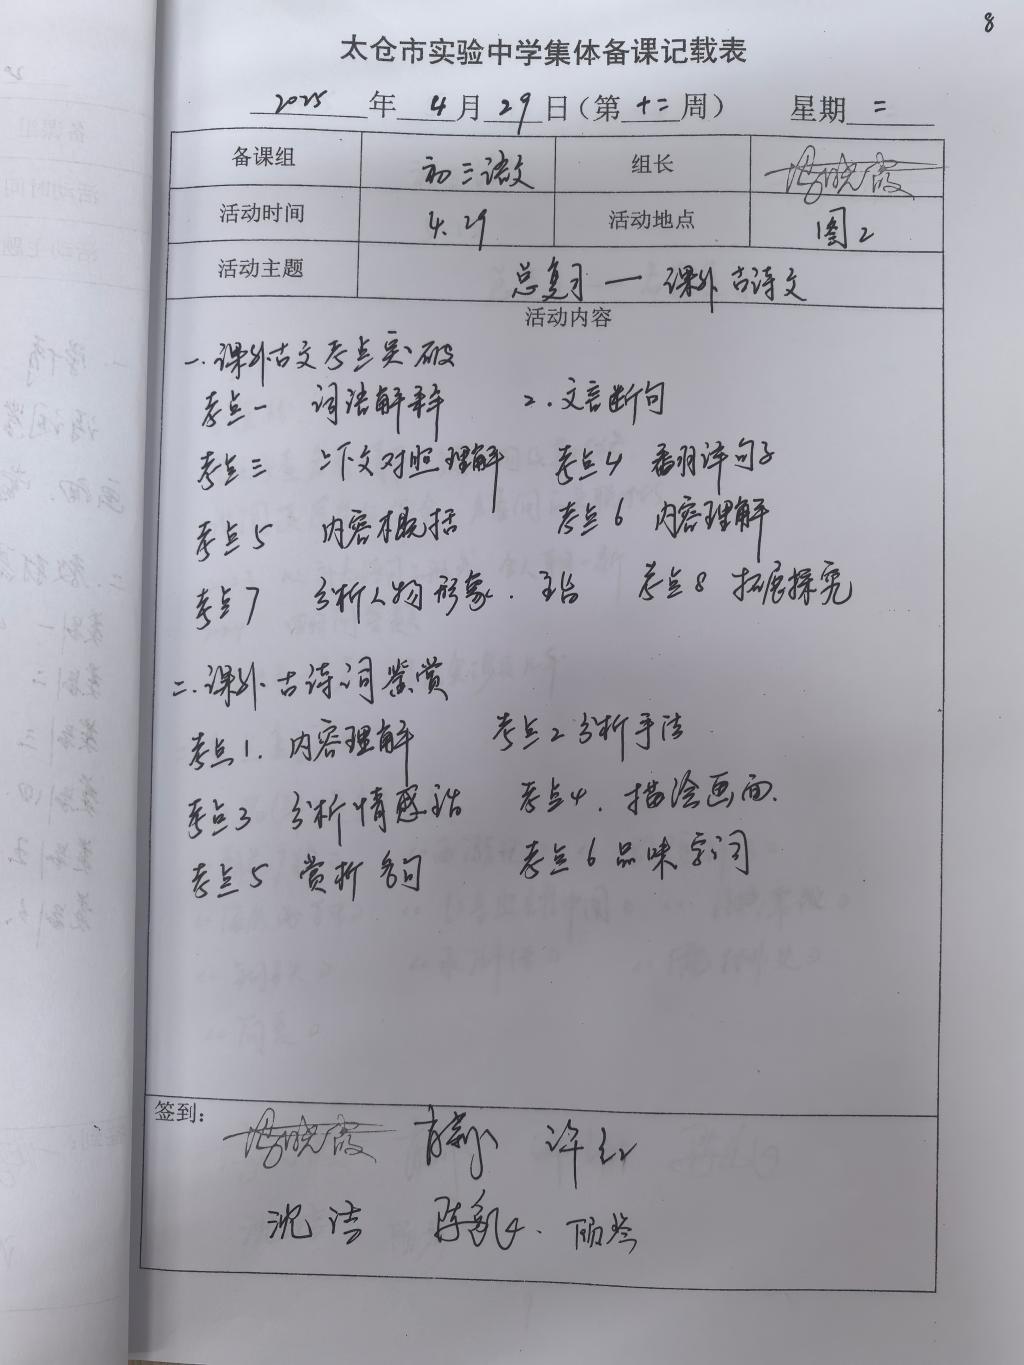 8
太仓市实验中学集体备课记载表
2025 年 4 月 29 日（第 十二 周） 星期 二
备课组 初三语文 组长
活动时间 4.29 活动地点 图2
活动主题 总复习 — 课外古诗文
活动内容
一.课外古文考点突破
考点一 词语解释 2.文言断句
考点三 上下文对照理解 考点4 翻译句子
考点5 内容概括 考点6 内容理解
考点7 分析人物形象.主旨 考点8 拓展探究
二.课外古诗词鉴赏
考点1.内容理解 考点2 分析手法
考点3 分析情感主旨 考点4.描绘画面.
考点5 赏析名句 考点6 品味字词
签到：
晓霞 许红
沈洁